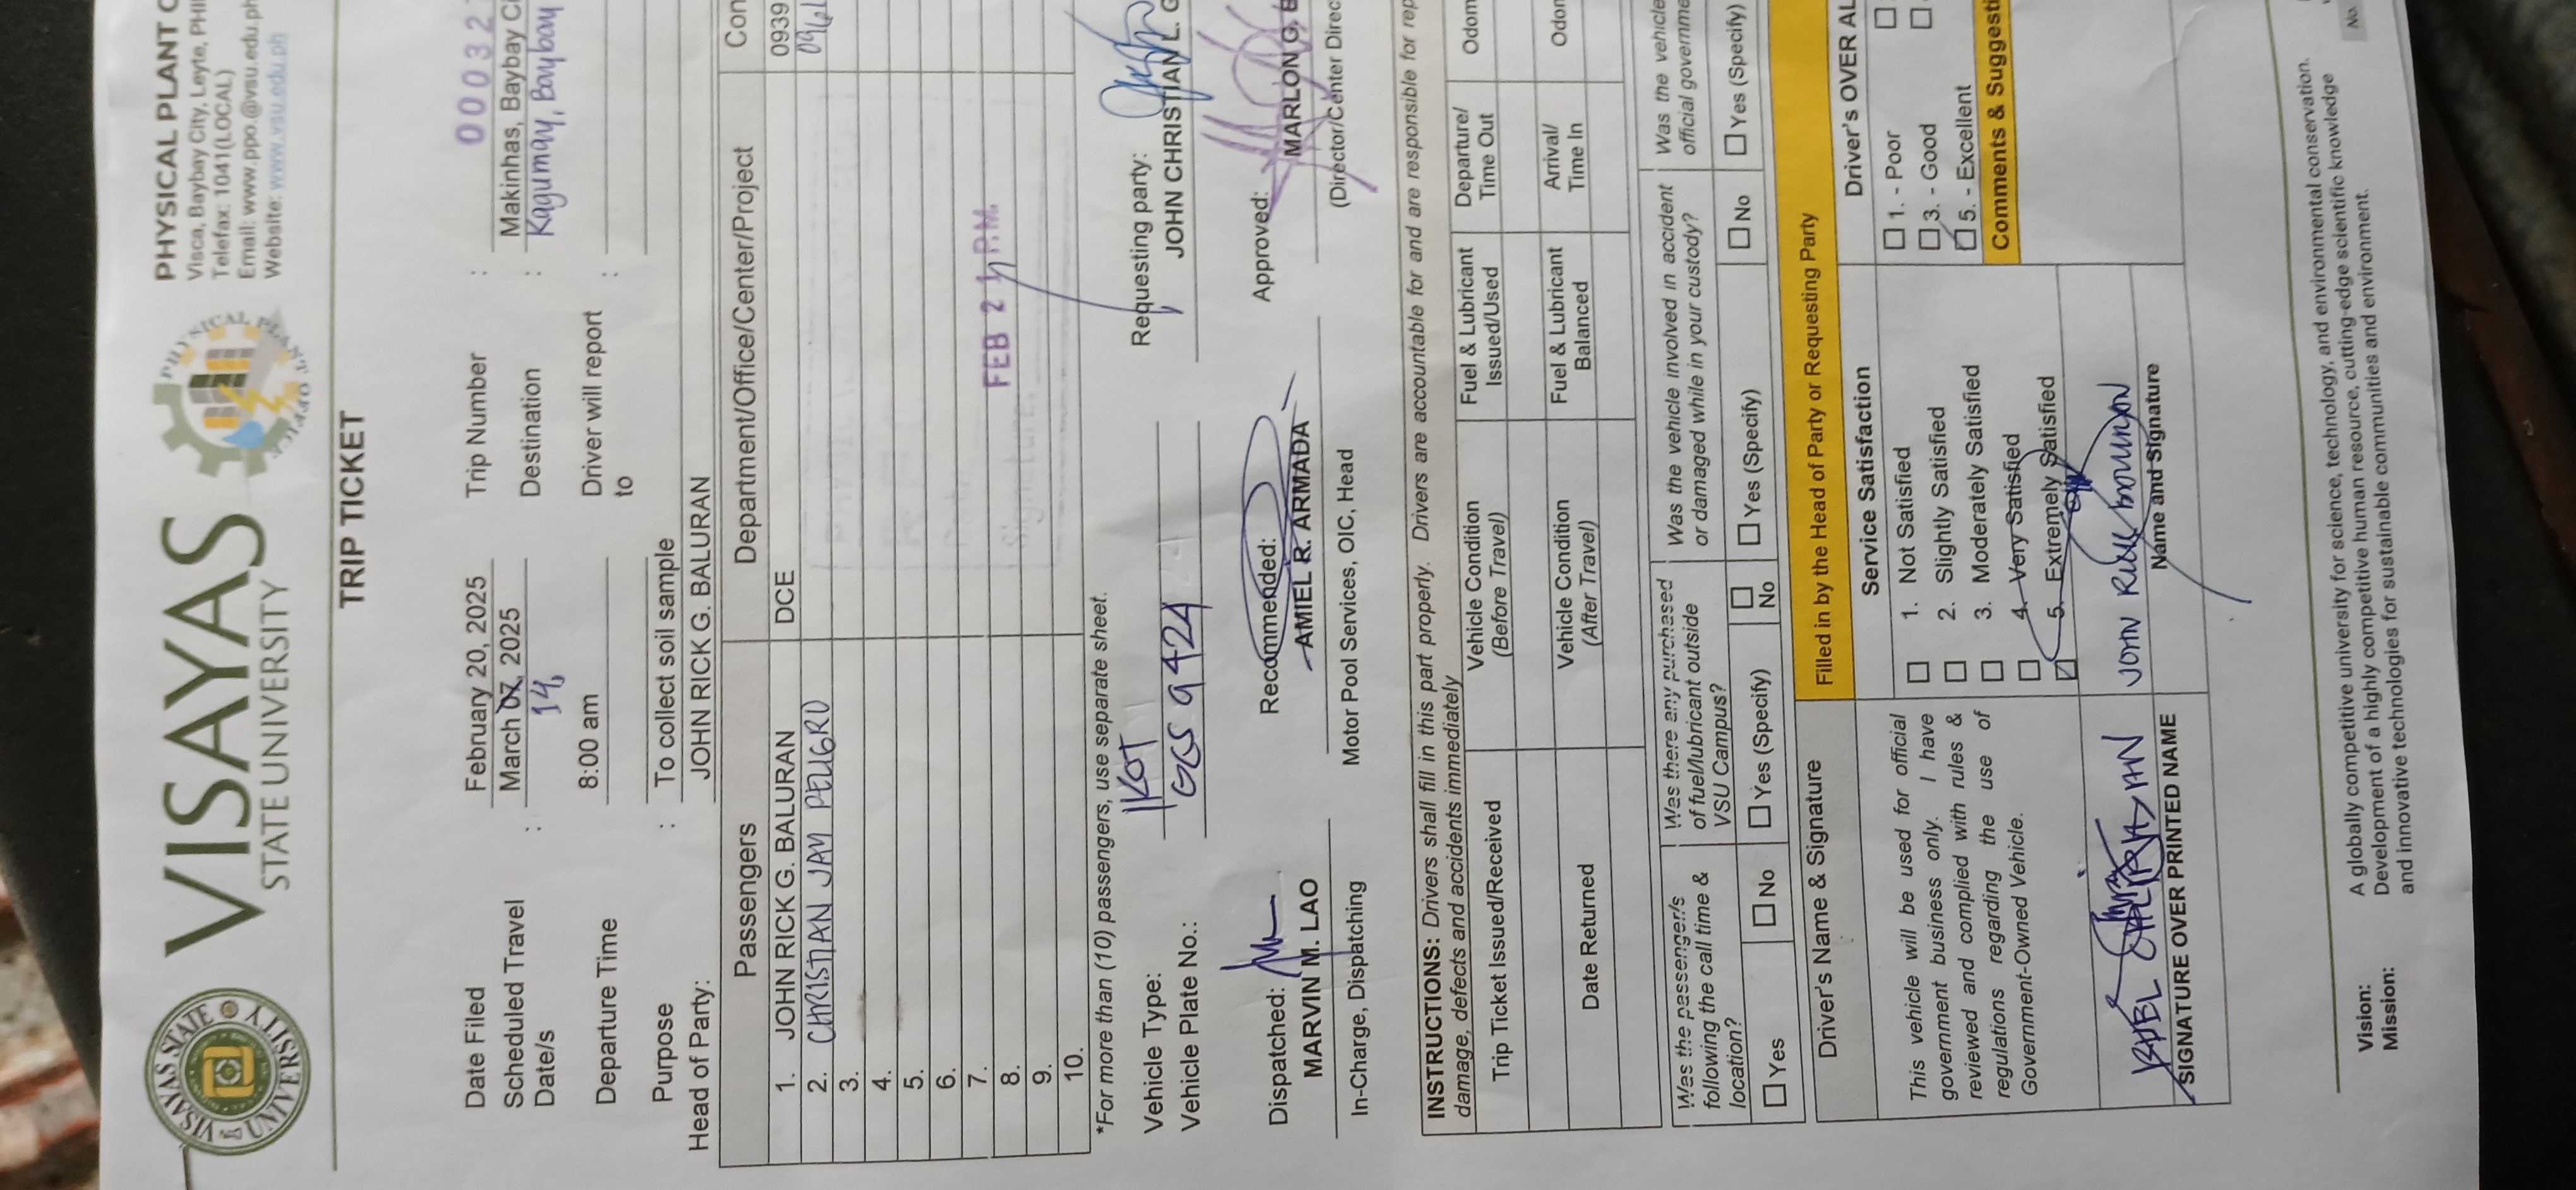 VISAYAS
STATE UNIVERSITY
PHYSICAL PLANT
Visca, Baybay City, Leyte,
Telefax: 1041(LOCAL)
Email: www.ppo.@vsu.edu.ph
Website: www.vsu.edu.ph
TRIP TICKET
Date Filed February 20, 2025 Trip Number : 00032
Scheduled Travel Date/s : March 07, 2025 14, Destination : Makinhas, Baybay
Kagumay, Baybay
Departure Time 8:00 am Driver will report to :
Purpose : To collect soil sample
Head of Party: JOHN RICK G. BALURAN
Passengers Department/Office/Center/Project
1. JOHN RICK G. BALURAN DCE 0939
2. CHRISTIAN JAY
3.
4.
5.
6.
7.
8.
9.
10.
FEB 2 P.M.
*For more than (10) passengers, use separate sheet.
Vehicle Type: Requesting party:
Vehicle Plate No.: 9424 JOHN CHRISTIAN L.
Dispatched: Recommended: Approved:
MARVIN M. LAO AMIEL R. ARMADA MARLON G.
In-Charge, Dispatching Motor Pool Services, OIC, Head (Director/Center
INSTRUCTIONS: Drivers shall fill in this part properly. Drivers are accountable for and are responsible for
damage, defects and accidents immediately
Trip Ticket Issued/Received Vehicle Condition (Before Travel) Fuel & Lubricant Issued/Used Departure/ Time Out
Date Returned Vehicle Condition (After Travel) Fuel & Lubricant Balanced Arrival/ Time In
Was the passenger/s following the call time & location? Was there any purchased of fuel/lubricant outside VSU Campus? Was the vehicle involved in accident or damaged while in your custody? Was the vehicle official
Yes No Yes (Specify) No Yes (Specify) No Yes (Specify)
Filled in by the Head of Party or Requesting Party
Driver's Name & Signature Service Satisfaction Driver's OVER
This vehicle will be used for official
government business only. I have
reviewed and complied with rules &
regulations regarding the use of
Government-Owned Vehicle.
1. Not Satisfied
2. Slightly Satisfied
3. Moderately Satisfied
4. Very Satisfied
5. Extremely Satisfied
1. - Poor
3. - Good
5. - Excellent
Comments &
SIGNATURE OVER PRINTED NAME
Name and Signature
Vision: A globally competitive university for science, technology, and environmental conservation.
Mission: Development of a highly competitive human resource, cutting-edge scientific knowledge
and innovative technologies for sustainable communities and environment.
No.